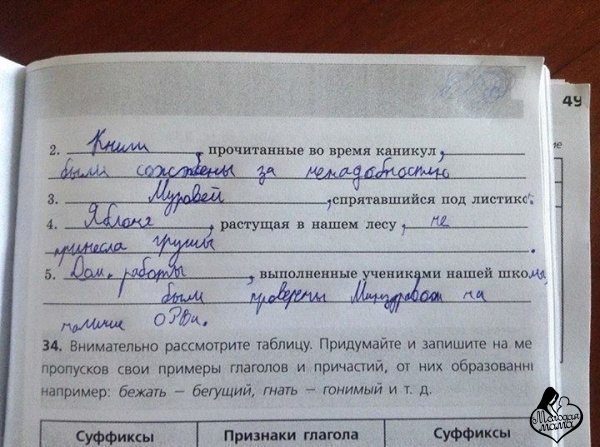 49
2. Книги, прочитанные во время каникул,
были сожжены за ненадобностью
3. Муравей, спрятавшийся под листик.
4. Яблоня, растущая в нашем лесу, не
принесла груши.
5. Дом. работы, выполненные учениками нашей школы,
были проверены Минздравом на
наличие ОРВи.
34. Внимательно рассмотрите таблицу. Придумайте и запишите на ме
пропусков свои примеры глаголов и причастий, от них образованн
например: бежать – бегущий, гнать – гонимый и т. д.
Суффиксы Признаки глагола Суффиксы
Молодая мама